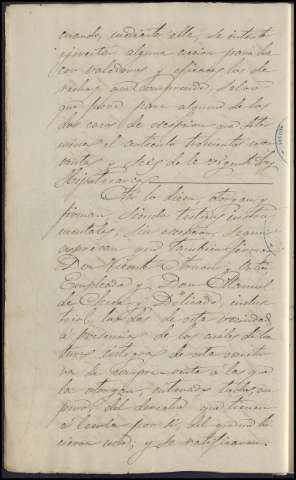 cuando, mediante ella, se intente
ejercitar alguna accion para ha-
cer valederos y eficaces los de-
rechos que comprende, salvo
que fuere para alguno de los
dos casos de escepcion que deter-
mina el articulo trescientos no-
venta y seis de la vigente Ley
Hipotecaria.
Asi lo dicen, otorgan y
firman, siendo testigos instru-
mentales, sin escepcion, segun
aseveran que tambien firman
Don Vicente y
Empleado y Don Manuel
de Checa y Delicado, indus-
trial, los dos de esta vecindad
á presencia de los cuales doy lec-
tura integra de esta escritu-
ra de compra venta á los que
la otorgan, enterados todos, an-
tes, del derecho que tienen
á leerla por si, del que no hi-
cieron uso, y se ratificaron.